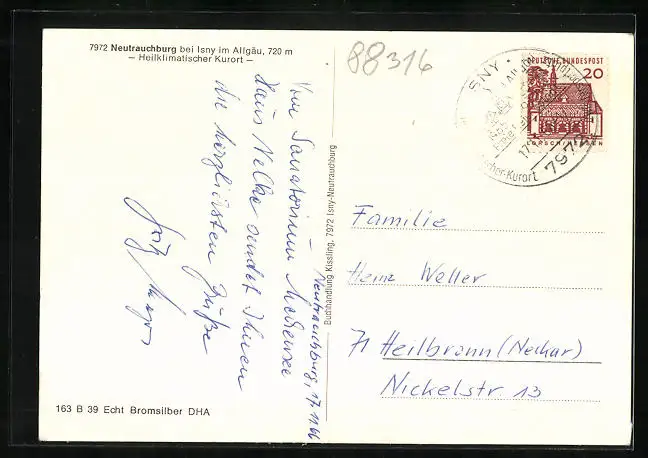 7972 Neutrauchburg bei Isny im Allgäu, 720 m
– Heilklimatischer Kurort –
88316
Neutrauchburg, 17.11.66
Vom Sanatorium
Haus Nelke sendet Ihnen
die herzlichsten Grüße
Fritz
163 B 39 Echt Bromsilber DHA
Buchhandlung Kissling, 7972 Isny-Neutrauchburg
ISNY
7972
DEUTSCHE BUNDESPOST
20
LORSCH/HESSEN
Familie
Heinz Weller
71 Heilbronn (Neckar)
Nickelstr. 13